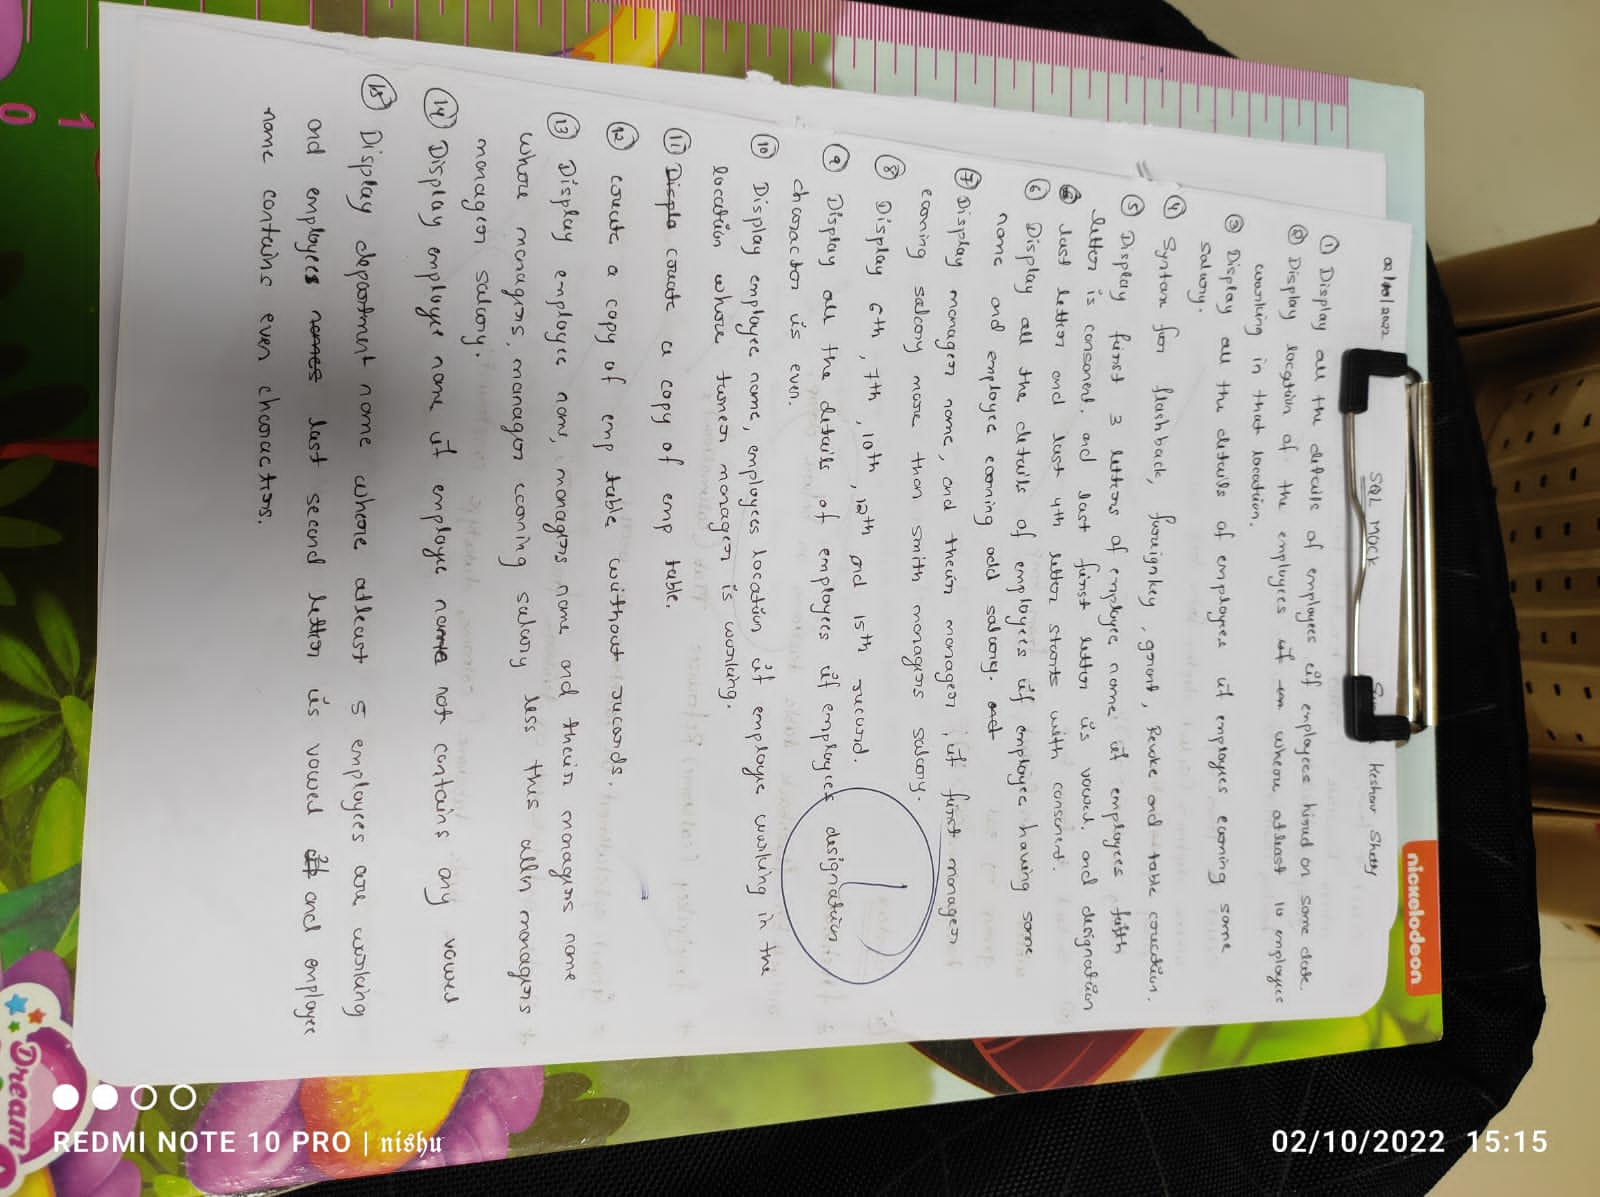 02/10/2022 SQL MOCK Keshav Shetty
① Display all the details of employees if employees hired on same date.
② Display location of the employees if in where atleast 10 employees
working in that location.
③ Display all the details of employees if employees earning same
salary.
④ Syntax for flashback, foreignkey, grant, Revoke and table creation.
⑤ Display first 3 letters of employee name if employees fifth
letter is consonent. and last first letter is vowel. and designation
last letter and last 4th letter starts with consonent.
⑥ Display all the details of employees if employee having some
name and employee earning odd salary.
⑦ Display manager name, and their manager, if first manager
earning salary more than smith managers salary.
⑧ Display 6th, 7th, 10th, 12th and 15th record.
⑨ Display all the details of employees if employees designation
character is even.
⑩ Display employee name, employees location if employee working in the
location where turner manager is working.
⑪ Displa create a copy of emp table.
⑫ create a copy of emp table without records.
⑬ Display employee name, managers name and their managers name
where managers, manager earning salary less this alln managers
manager salary.
⑭ Display employee name if employee name not contains any vowel
⑮ Display department name where atleast 5 employees are working
and employees names last second letter is vowel if and employee
name contains even characters.
nickelodeon
0 1
Dream
REDMI NOTE 10 PRO | nishu
02/10/2022 15:15